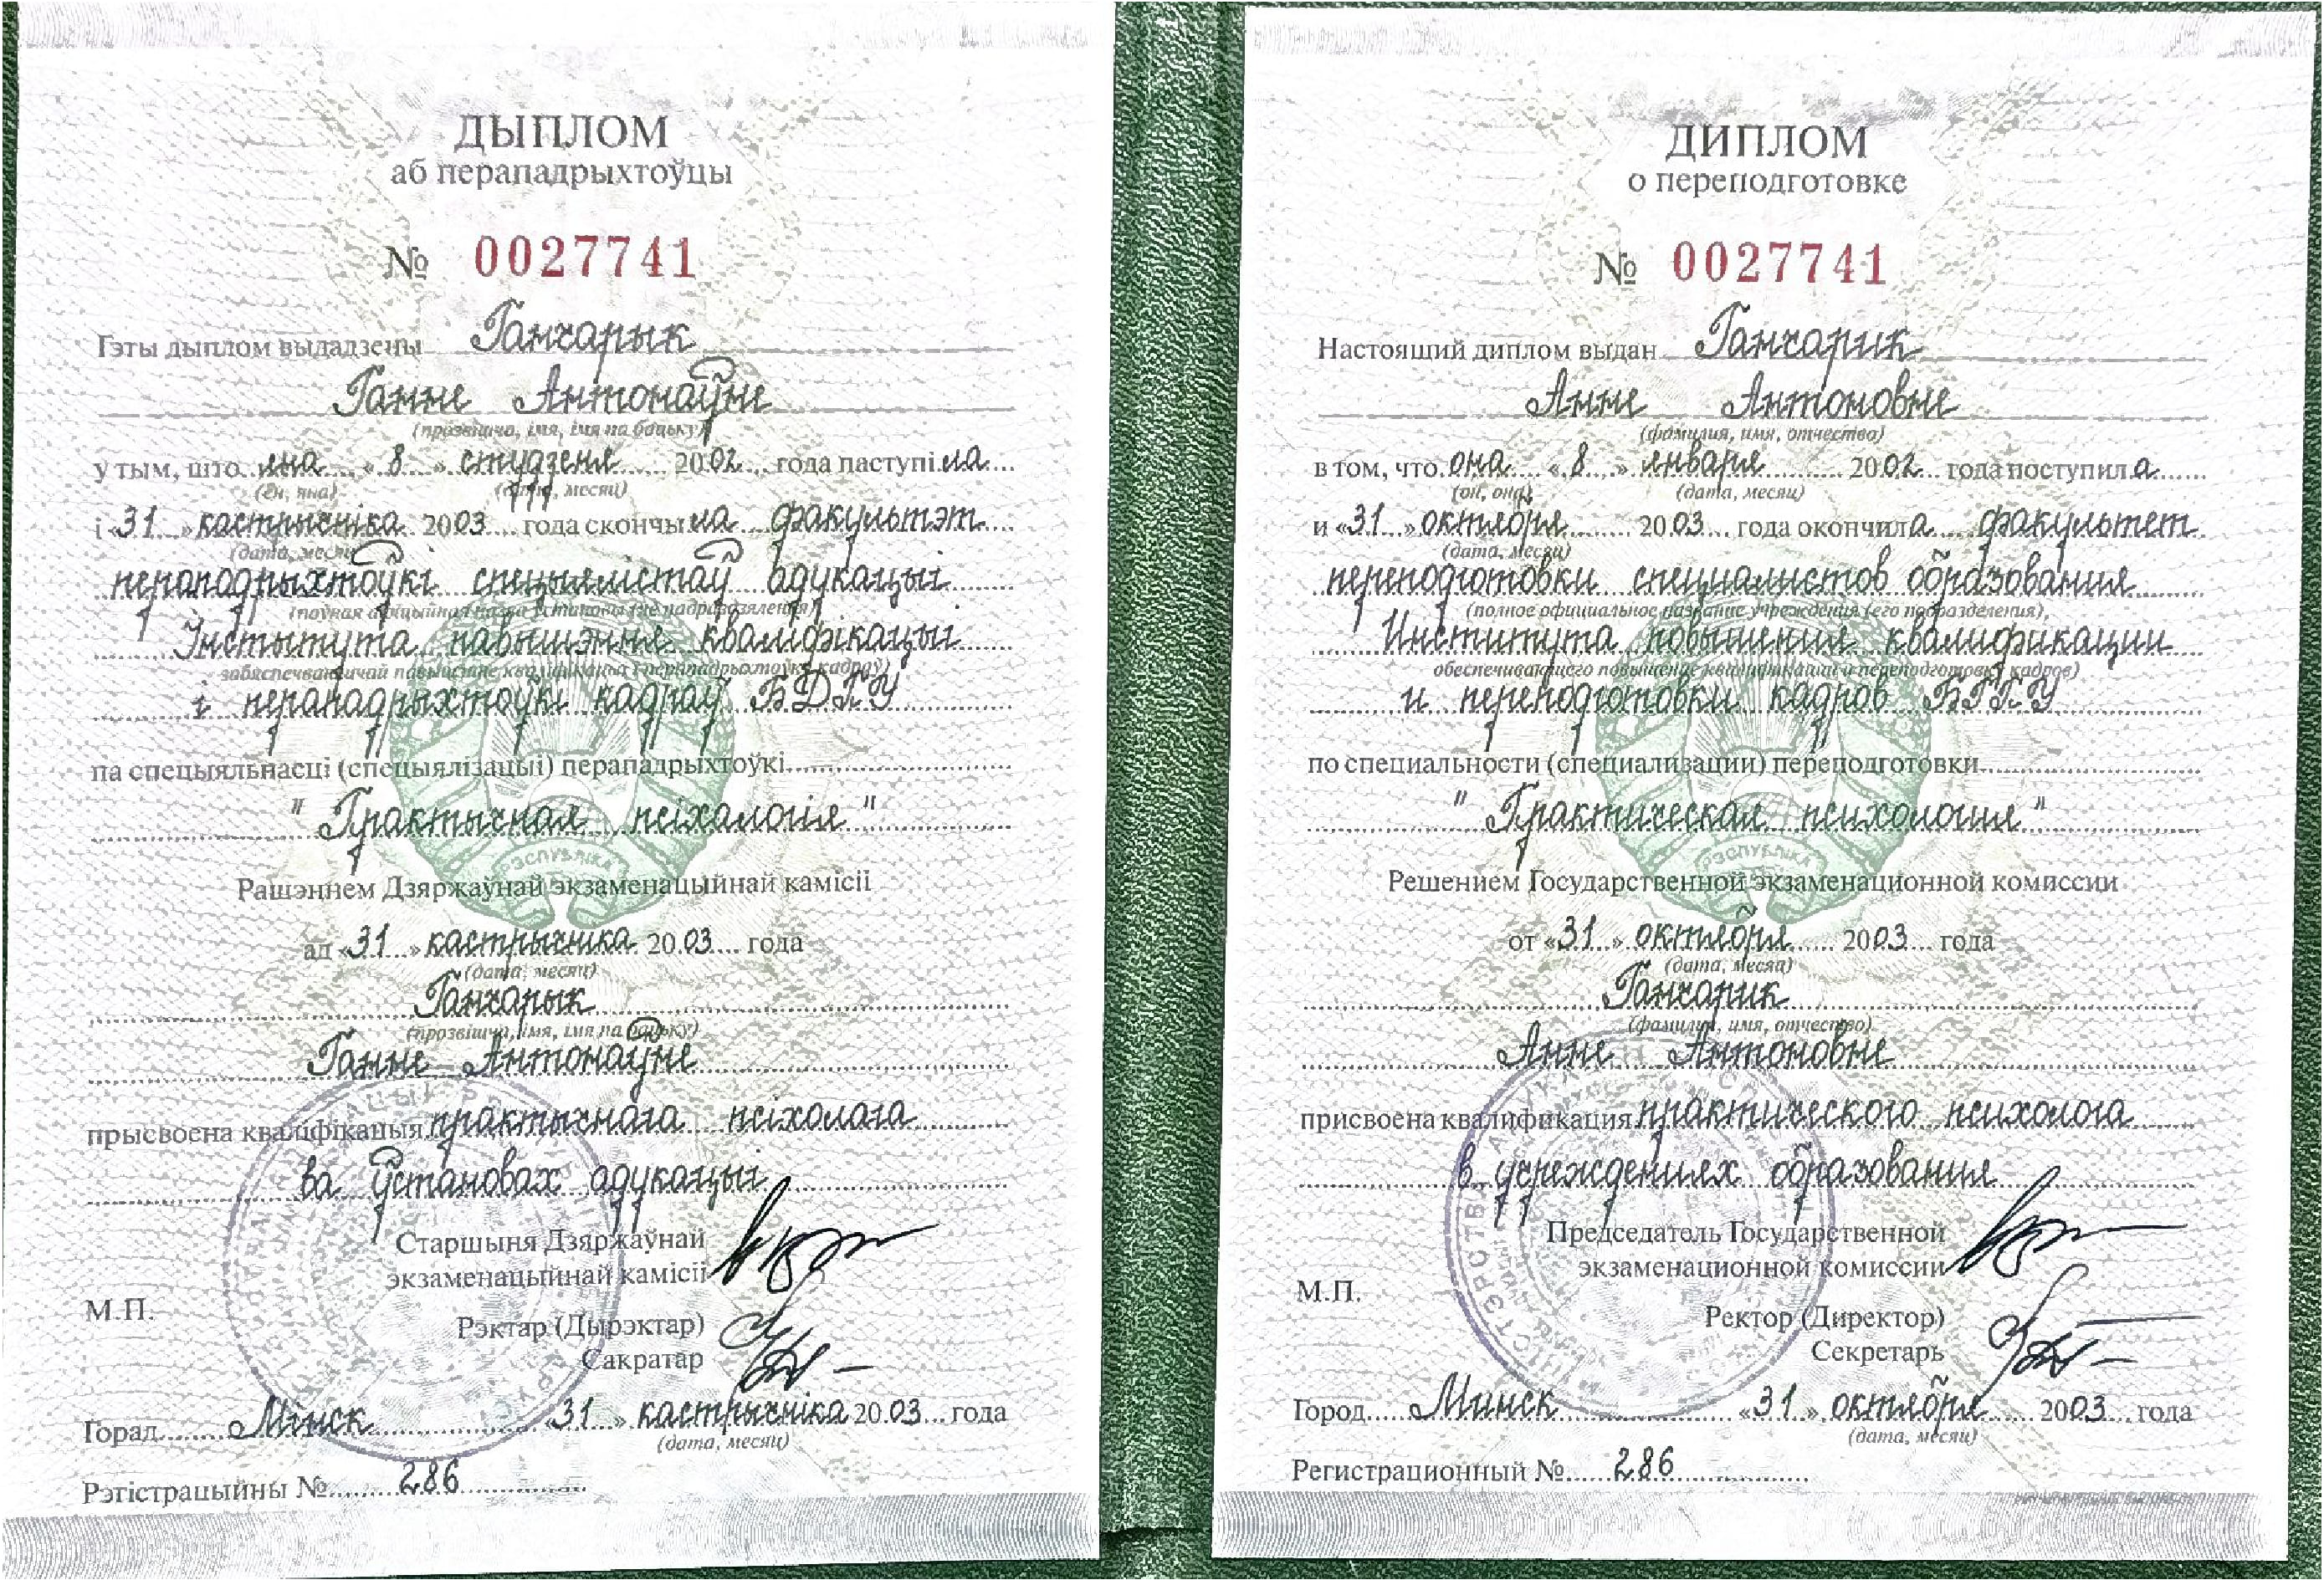 ДЫПЛОМ
аб перападрыхтоўцы
№ 0027741
Гэты дыплом выдадзены Ганчарык
Ганне Антонаўне
(прозвішча, імя, імя па бацьку)
у тым, што яна « 8 » студзеня 2002 года паступіла
(ён, яна) (дата, месяц)
і «31» кастрычніка 2003 года скончыла факультэт
(дата, месяц)
перападрыхтоўкі спецыялістаў адукацыі
(поўная афіцыйная назва ўстановы (яе падраздзялення)
Інстытута павышэння кваліфікацыі
забяспечваючай павышэнне кваліфікацыі і перападрыхтоўку кадраў)
і перападрыхтоўкі кадраў БДПУ
па спецыяльнасці (спецыялізацыі) перападрыхтоўкі
"Практычная псіхалогія"
Рашэннем Дзяржаўнай экзаменацыйнай камісіі
ад «31» кастрычніка 2003 года
(дата, месяц)
Ганчарык
(прозвішча, імя, імя па бацьку)
Ганне Антонаўне
прысвоена кваліфікацыя практычнага псіхолага
ва ўстановах адукацыі
Старшыня Дзяржаўнай
экзаменацыйнай камісіі
М.П.
Рэктар (Дырэктар)
Сакратар
Горад Мінск «31» кастрычніка 2003 года
(дата, месяц)
Рэгістрацыйны № 286
ДИПЛОМ
о переподготовке
№ 0027741
Настоящий диплом выдан Ганчарик
Анне Антоновне
(фамилия, имя, отчество)
в том, что она « 8 » января 2002 года поступила
(он, она) (дата, месяц)
и «31» октября 2003 года окончила факультет
(дата, месяц)
переподготовки специалистов образования
(полное официальное название учреждения (его подразделения),
Института повышения квалификации
обеспечивающего повышение квалификации и переподготовку кадров)
и переподготовки кадров БГПУ
по специальности (специализации) переподготовки
"Практическая психология"
Решением Государственной экзаменационной комиссии
от «31» октября 2003 года
(дата, месяц)
Ганчарик
(фамилия, имя, отчество)
Анне Антоновне
присвоена квалификация практического психолога
в учреждениях образования
Председатель Государственной
экзаменационной комиссии
М.П.
Ректор (Директор)
Секретарь
Город Минск «31» октября 2003 года
(дата, месяц)
Регистрационный № 286